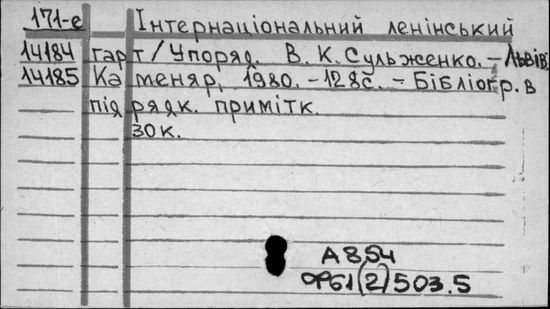 171-е Інтернаціональний ленінський
14184 гарт / Упоряд. В. К. Сульженко. – Львів
14185 Каменяр, 1980. – 128с. – Бібліогр. в
підрядк. примітк.
30 к.
А854
ФБ1(2)503.5